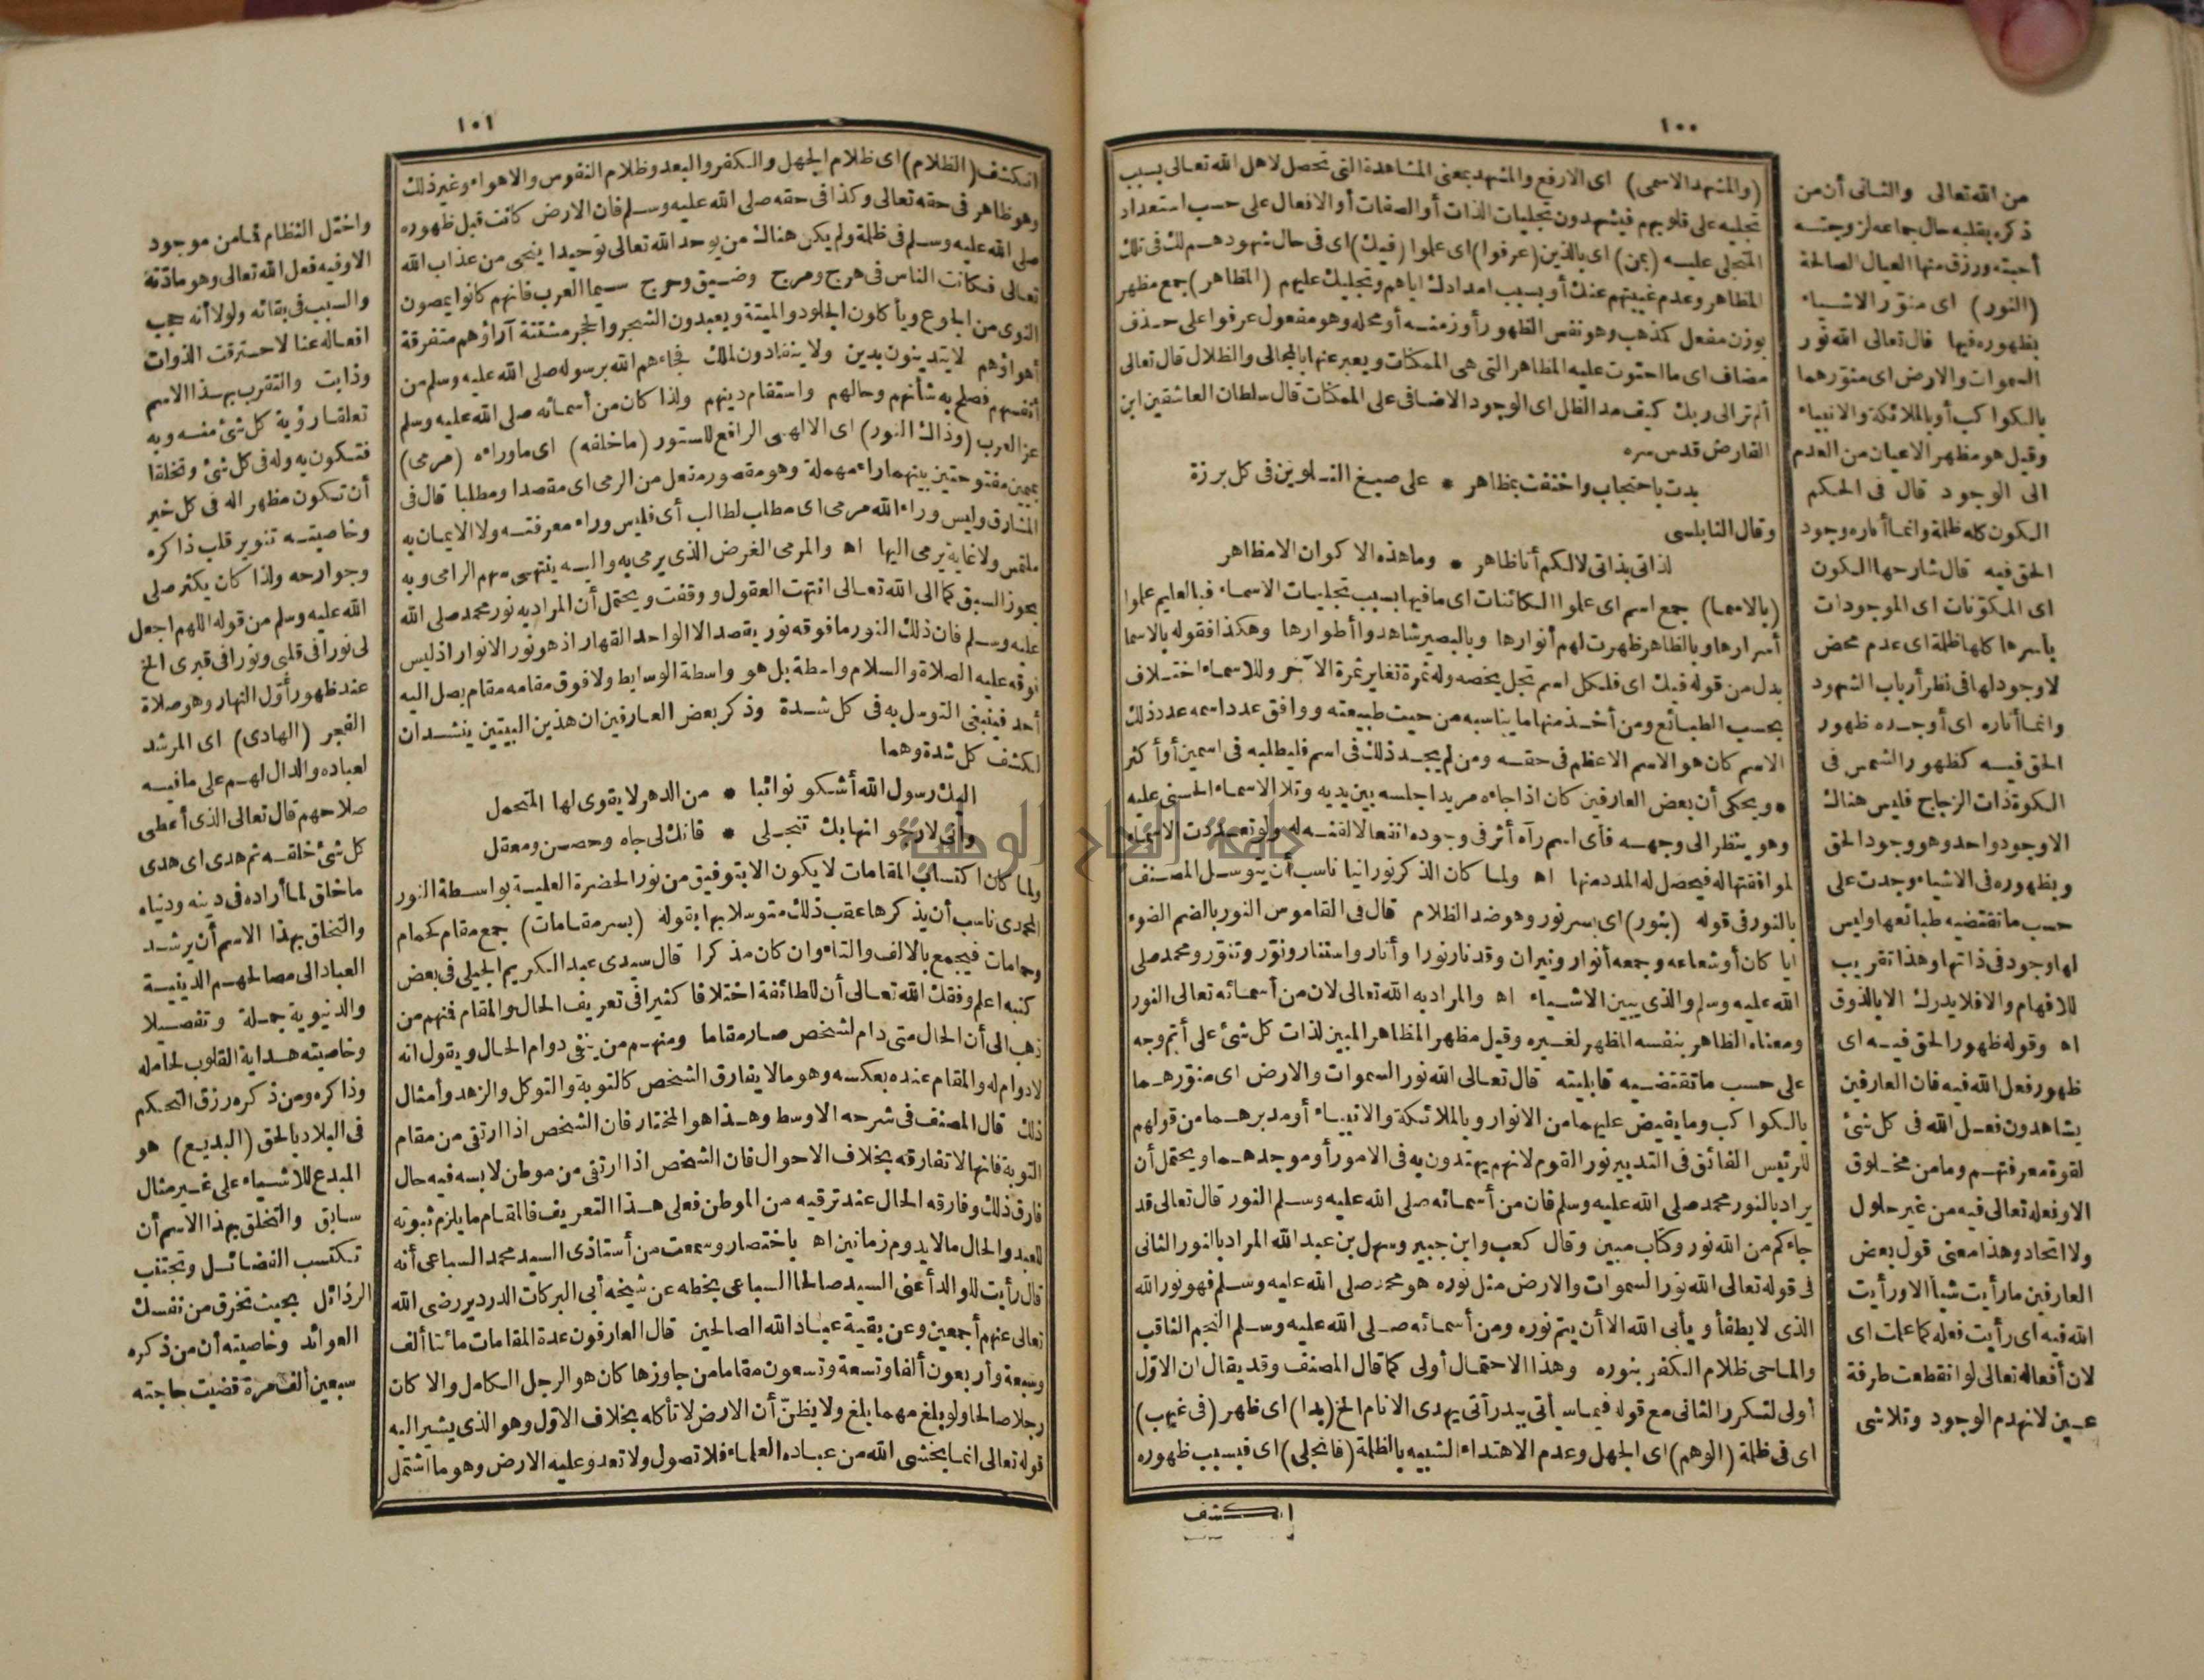 ١٠٠
(والمشهد الاسمى) اى الارفع والمشهد بمعنى المشاهدة التى تحصل لاهل الله تعالى بسبب
تجليه على قلوبهم فيشهدون تجليات الذات أو الصفات أو الافعال على حسب استعداد
المتجلى عليه (بمن) اى بالذين (عرفوا) اى علموا (فيك) اى فى حال شهودهم لك فى تلك
المظاهر وعدم غيبتهم عنك أو بسبب امدادك اياهم وتجليك عليهم (المظاهر) جمع مظهر
بوزن مفعل كمذهب وهو نفس الظهور أو زمنه أو محله وهو مفعول عرفوا على حذف
مضاف اى ما احتوت عليه المظاهر التى هى الممكنات ويعبر عنها بالمجالى والظلال قال تعالى
ألم تر الى ربك كيف مد الظل اى الوجود الاضافى على الممكنات قال سلطان العاشقين ابن
الفارض قدس سره
بدت باحتجاب واختفت بمظاهر * على صبغ التلوين فى كل برزة
وقال النابلسى
لذاتى بذاتى لا لكم أنا ظاهر * وما هذه الاكوان الا مظاهر
(بالاسما) جمع اسم اى علموا الكائنات اى ما فيها بسبب تجليات الاسماء فبالعليم علموا
أسرارها وبالظاهر ظهرت لهم أنوارها وبالبصير شاهدوا أطوارها وهكذا فقوله بالاسما
بدل من قوله فيك اى فلكل اسم تجل يخصه وله ثمرة تغاير ثمرة الآخر وللاسماء اختلاف
بحسب الطبائع ومن أخذ منها ما يناسبه من حيث طبيعته ووافق عدد اسمه عدد ذلك
الاسم كان هو الاسم الاعظم فى حقه ومن لم يجد ذلك فى اسم فليطلبه فى اسمين أو أكثر
* ويحكى أن بعض العارفين كان اذا جاءه مريد اجلسه بين يديه وتلا الاسماء الحسنى عليه
وهو ينظر الى وجهه فأى اسم رآه أثر فى وجوده انفعالا لقنه له ولو تعددت الاسماء
لموافقتها له فيحصل له المدد منها اه ولما كان الذكر نورانيا ناسب أن يتوسل المصنف
بالنور فى قوله (بنور) اى بسر نور وهو ضد الظلام قال فى القاموس النور بالضم الضوء
ايا كان أو شعاعه وجمعه أنوار ونيران وقد نار نورا وأنار واستنار ونوّر وتنوّر ومحمد صلى
الله عليه وسلم والذى يبين الاشياء اه والمراد به الله تعالى لان من أسمائه تعالى النور
ومعناه الظاهر بنفسه المظهر لغيره وقيل مظهر المظاهر المبين لذات كل شئ على أتم وجه
على حسب ما تقتضيه قابليته قال تعالى الله نور السموات والارض اى منوّرهما
بالكواكب وما يفيض عليهما من الانوار وبالملائكة والانبياء أو مدبرهما من قولهم
للرئيس الفائق فى التدبير نور القوم لانهم يهتدون به فى الامور أو موجدهما ويحتمل أن
يراد بالنور محمد صلى الله عليه وسلم فان من أسمائه صلى الله عليه وسلم النور قال تعالى قد
جاءكم من الله نور وكتاب مبين وقال كعب وابن جبير وسهل بن عبد الله المراد بالنور الثانى
فى قوله تعالى الله نور السموات والارض مثل نوره هو محمد صلى الله عليه وسلم فهو نور الله
الذى لا يطفأ ويأبى الله الا أن يتم نوره ومن أسمائه صلى الله عليه وسلم النجم الثاقب
والماحى ظلام الكفر بنوره وهذا الاحتمال أولى كما قال المصنف وقد يقال ان الاوّل
أولى لتكرر الثانى مع قوله فيما سيأتى ببدر أتى يهدى الانام الخ (بدا) اى ظهر (فى غيهب)
اى فى ظلمة (الوهم) اى الجهل وعدم الاهتداء الشبيه بالظلمة (فانجلى) اى فبسبب ظهوره
انكشف
من الله تعالى والثانى أن من
ذكره بقلبه حال جماعه لزوجته
أحبته ورزق منها العيال الصالحة
(النور) اى منوّر الاشياء
بظهوره فيها قال تعالى الله نور
السموات والارض اى منوّرهما
بالكواكب أو بالملائكة والانبياء
وقيل هو مظهر الاعيان من العدم
الى الوجود قال فى الحكم
الكون كله ظلمة وانما أناره وجود
الحق فيه قال شارحها الكون
اى المكوّنات اى الموجودات
بأسرها كلها ظلمة اى عدم محض
لا وجود لها فى نظر أرباب الشهود
وانما أناره اى أوجده ظهور
الحق فيه كظهور الشمس فى
الكوة ذات الزجاج فليس هناك
الا وجود واحد وهو وجود الحق
وبظهوره فى الاشياء وجدت على
حسب ما تقتضيه طبائعها وليس
لها وجود فى ذاتها وهذا تقريب
للافهام والا فلا يدرك الا بالذوق
اه وقوله ظهور الحق فيه اى
ظهور فعل الله فيه فان العارفين
يشاهدون فعل الله فى كل شئ
لقوة معرفتهم وما من مخلوق
الا وفعله تعالى فيه من غير حلول
ولا اتحاد وهذا معنى قول بعض
العارفين ما رأيت شيأ الا ورأيت
الله فيه اى رأيت فعله كما علمت اى
لان أفعاله تعالى لو انقطعت طرفة
عين لانهدم الوجود وتلاشى
١٠١
انكشف (الظلام) اى ظلام الجهل والكفر والبعد وظلام النفوس والاهواء وغير ذلك
وهو ظاهر فى حقه تعالى وكذا فى حقه صلى الله عليه وسلم فان الارض كانت قبل ظهوره
صلى الله عليه وسلم فى ظلمة ولم يكن هناك من يوحد الله تعالى توحيدا ينجى من عذاب الله
تعالى فكانت الناس فى هرج ومرج وضيق وحرج سيما العرب فانهم كانوا يمصون
النوى من الجوع ويأكلون الجلود والميتة ويعبدون الشجر والحجر مشتتة آراؤهم متفرقة
أهواؤهم لا يتدينون بدين ولا ينقادون لملك فجاءهم الله برسوله صلى الله عليه وسلم من
أنفسهم فصلح به شأنهم وحالهم واستقام دينهم ولذا كان من أسمائه صلى الله عليه وسلم
عز العرب (وذاك النور) اى الالهى الرافع للستور (ما خلفه) اى ما وراءه (مرمى)
بميمين مفتوحتين بينهما راء مهملة وهو مقصور مفعل من الرمى اى مقصدا ومطلبا قال فى
المشارق وليس وراء الله مرمى اى مطلب لطالب أى فليس وراء معرفته ولا الايمان به
ملتمس ولا غاية يرمى اليها اه والمرمى الغرض الذى يرمى به واليه ينتهى سهم الرامى وبه
يحوز السبق كما الى الله تعالى انتهت العقول ووقفت ويحتمل أن المراد به نور محمد صلى الله
عليه وسلم فان ذلك النور ما فوقه نور يقصد الا الواحد القهار اذ هو نور الانوار اذ ليس
فوقه عليه الصلاة والسلام واسطة بل هو واسطة الوسايط ولا فوق مقامه مقام يصل اليه
أحد فينبغى التوسل به فى كل شدة وذكر بعض العارفين ان هذين البيتين ينشدان
لكشف كل شدة وهما
اليك رسول الله أشكو نوائبا * من الدهر لا يقوى لها المتحمل
وأنى لارجو انها بك تنجلى * فانك لى جاه وحصن ومعقل
ولما كان اكتساب المقامات لا يكون الا بتوفيق من نور الحضرة العلية بواسطة النور
المحمدى ناسب أن يذكرها عقب ذلك متوسلا بها بقوله (بسر مقامات) جمع مقام كحمام
وحمامات فيجمع بالالف والتاء وان كان مذكرا قال سيدى عبد الكريم الجيلى فى بعض
كتبه اعلم وفقك الله تعالى أن للطائفة اختلافا كثيرا فى تعريف الحال والمقام فمنهم من
ذهب الى أن الحال متى دام لشخص صار مقاما ومنهم من ينفى دوام الحال ويقول انه
لا دوام له والمقام عنده بعكسه وهو ما لا يفارق الشخص كالتوبة والتوكل والزهد وأمثال
ذلك قال المصنف فى شرحه الاوسط وهذا هو المختار فان الشخص اذا ارتقى من مقام
التوبة فانها لا تفارقه بخلاف الاحوال فان الشخص اذا ارتقى من موطن لابسه فيه حال
فارق ذلك وفارقه الحال عند ترقيه من الموطن فعلى هذا التعريف فالمقام ما يلزم ثبوته
للعبد والحال ما لا يدوم زمانين اه باختصار وسمعت من أستاذى السيد محمد السباعى أنه
قال رأيت للوالد أعنى السيد صالحا السباعى بخطه عن شيخه أبى البركات الدردير رضى الله
تعالى عنهم أجمعين وعن بقية عباد الله الصالحين قال العارفون عدة المقامات مائتا ألف
وسبعة وأربعون ألفا وتسعة وتسعون مقاما من جاوزها كان هو الرجل الكامل والا كان
رجلا صالحا ولو بلغ مهما بلغ ولا يظنّ أن الارض لا تأكله بخلاف الاوّل وهو الذى يشير اليه
قوله تعالى انما يخشى الله من عباده العلماء فلا تصول ولا تعدو عليه الارض وهو ما اشتمل
واختل النظام فما من موجود
الا وفيه فعل الله تعالى وهو مادّته
والسبب فى بقائه ولولا أنه حجب
افعاله عنا لاحترقت الذوات
وذابت والتقرب بهذا الاسم
تعلقا رؤية كل شئ منه وبه
فتكون به وله فى كل شئ وتخلقا
أن تكون مظهرا له فى كل خير
وخاصيته تنوير قلب ذاكره
وجوارحه ولذا كان يكثر صلى
الله عليه وسلم من قوله اللهم اجعل
لى نورا فى قلبى ونورا فى قبرى الخ
عند ظهور أوّل النهار وهو صلاة
الفجر (الهادى) اى المرشد
لعباده والدال لهم على ما فيه
صلاحهم قال تعالى الذى أعطى
كل شئ خلقه ثم هدى اى هدى
ما خلق لما أراده فى دينه ودنياه
والتخلق بهذا الاسم أن يرشد
العباد الى مصالحهم الدينية
والدنيوية جملة وتفصيلا
وخاصيته هداية القلوب لحامله
وذاكره ومن ذكره رزق التحكم
فى البلاد بالحق (البديع) هو
المبدع للاشياء على غير مثال
سابق والتخلق بهذا الاسم أن
تكتسب الفضائل وتجتنب
الرذائل بحيث تخرق من نفسك
العوائد وخاصيته أن من ذكره
سبعين ألف مرة قضيت حاجته
جامعة النجاح الوطنية